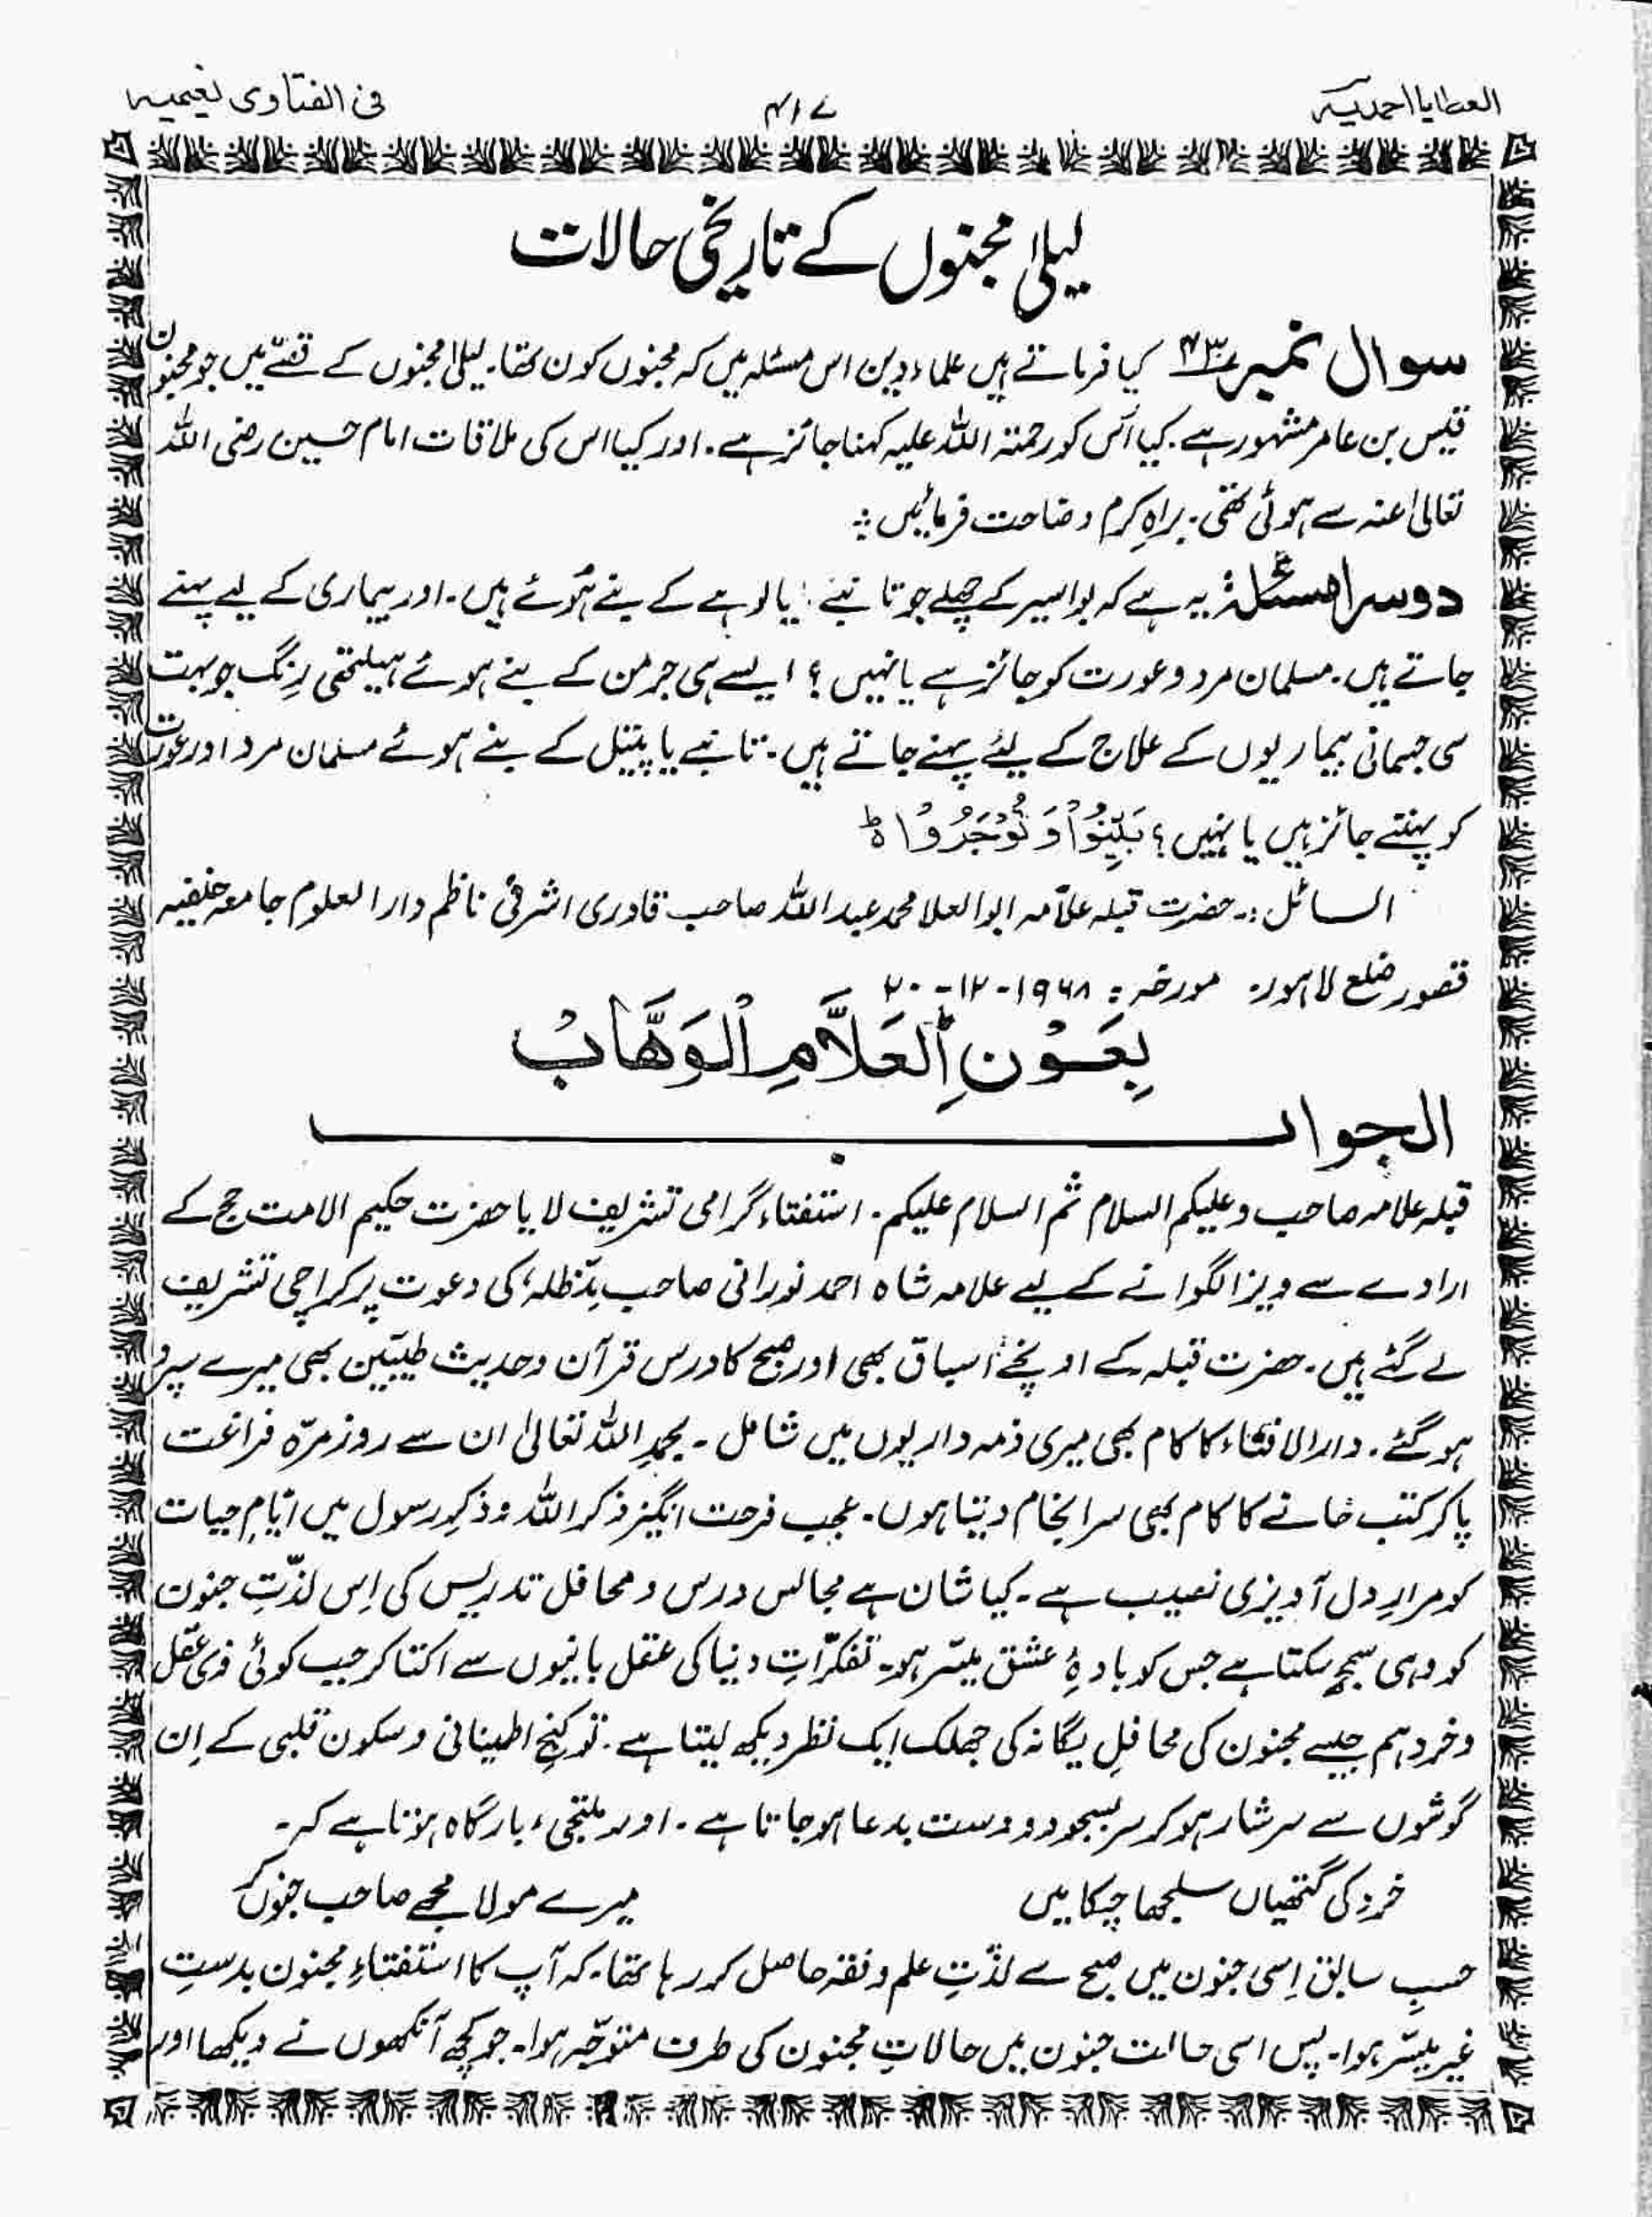 العطایا احمدیہ
۴۱۷
فی الفتاوی نعیمیہ
لیلیٰ مجنوں کے تاریخی حالات
سوال نمبر ۴۳ کیا فرماتے ہیں علماء دین اس مسئلہ میں کہ مجنوں کون تھا۔ لیلیٰ مجنوں کے قصّے میں جو مجنون
قیس بن عامر مشہور ہے۔ کیا اُس کو رحمتہ اللہ علیہ کہنا جائز ہے۔ اور کیا اس کی ملاقات امام حسین رضی اللہ
تعالیٰ عنہ سے ہوئی تھی۔ براہِ کرم وضاحت فرمائیں :۔
دوسرا مسئلہ: یہ ہے کہ بواسیر کے چھلے جو تانبے یا لوہے کے بنے ہُوئے ہیں۔ اور بیماری کے لیے پہنے
جاتے ہیں۔ مسلمان مرد و عورت کو جائز ہے یا نہیں ؟ ایسے ہی جرمن کے بنے ہوئے ہیلتھی رِنگ جو بہت
سی جسمانی بیماریوں کے علاج کے لیئے پہنے جاتے ہیں۔ تانبے یا پیتل کے بنے ہوئے مسلمان مرد اور عورت
کو پہننے جائز ہیں یا نہیں ؟ بَیِّنُوْا وَ تُوْجَرُوْا ط
السائل :۔ حضرت قبلہ علاّمہ ابوالعلا محمد عبداللہ صاحب قادری اشرفی ناظم دارالعلوم جامعہ حنفیہ
قصور ضلع لاہور۔ مورخہ : ۱۹۶۸-۱۲-۲۰
بِعَوْنِ الْعَلَّامِ الْوَهَّابُ
الجواب
قبلہ علامہ صاحب وعلیکم السلام ثم السلام علیکم۔ استفتاء گرامی تشریف لایا حضرت حکیم الامت حج کے
ارادے سے ویزا لگوانے کے لیے علامہ شاہ احمد نورانی صاحب مدّظلہ، کی دعوت پر کراچی تشریف
لے گئے ہیں۔ حضرت قبلہ کے اونچے اسباق بھی اور صبح کا درس قرآن و حدیث طیبّین بھی میرے سپرد
ہو گئے۔ دارالافتاء کا کام بھی میری ذمہ داریوں میں شامل ۔ بحمدِ اللہ تعالیٰ ان سے روزمرّہ فراغت
پا کر کتب خانے کا کام بھی سرانجام دیتا ہوں۔ عجب فرحت انگیز ذکر اللہ و ذکرِ رسول میں ایّامِ حیات
کو مرادِ دل آویزی نصیب ہے۔ کیا شان ہے مجالس درس و محافل تدریس کی اِس لذّتِ جنون
کو وہی سمجھ سکتا ہے جس کو بادۂِ عشق میسّر ہو۔ تفکرّاتِ دنیا کی عقل بانیوں سے اکتا کر جب کوئی ذی عقل
و خرد ہم جیسے مجنون کی محافلِ یگانہ کی جھلک ایک نظر دیکھ لیتا ہے۔ تو کنجِ اطمینانی و سکون قلبی کے اِن
گوشوں سے سرشار ہو کر سربسجود و دست بدعا ہو جاتا ہے۔ اور ملتجیء بارگاہ ہوتا ہے کہ۔
خرد کی گتھیاں سلجھا چکا میں
میرے مولا مجھے صاحب جنوں کر
حسبِ سابق اِسی جنون میں صبح سے لذّتِ علم و فقہ حاصل کر رہا تھا۔ کہ آپ کا استفتاءِ مجنون بدستِ
غیر میسّر ہوا۔ پس اسی حالت جنون میں حالاتِ مجنون کی طرف متوجّہ ہوا۔ جو کچھ آنکھوں نے دیکھا اور